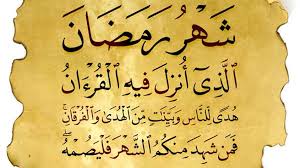 شَهْرُ رَمَضَانَ
الَّذِىٓ أُنزِلَ فِيهِ الْقُرْءَانُ
هُدًى لِّلنَّاسِ وَبَيِّنَٰتٍ مِّنَ الْهُدَىٰ وَالْفُرْقَانِ ۚ
فَمَن شَهِدَ مِنكُمُ الشَّهْرَ فَلْيَصُمْهُ ۖ